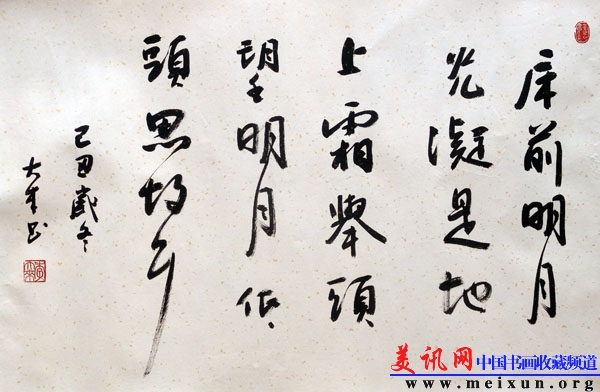 床前明月
光凝是地
上霜舉頭
望明月低
頭思故乡
己丑歲冬
美讯网 中国书画收藏频道
www.meixun.org